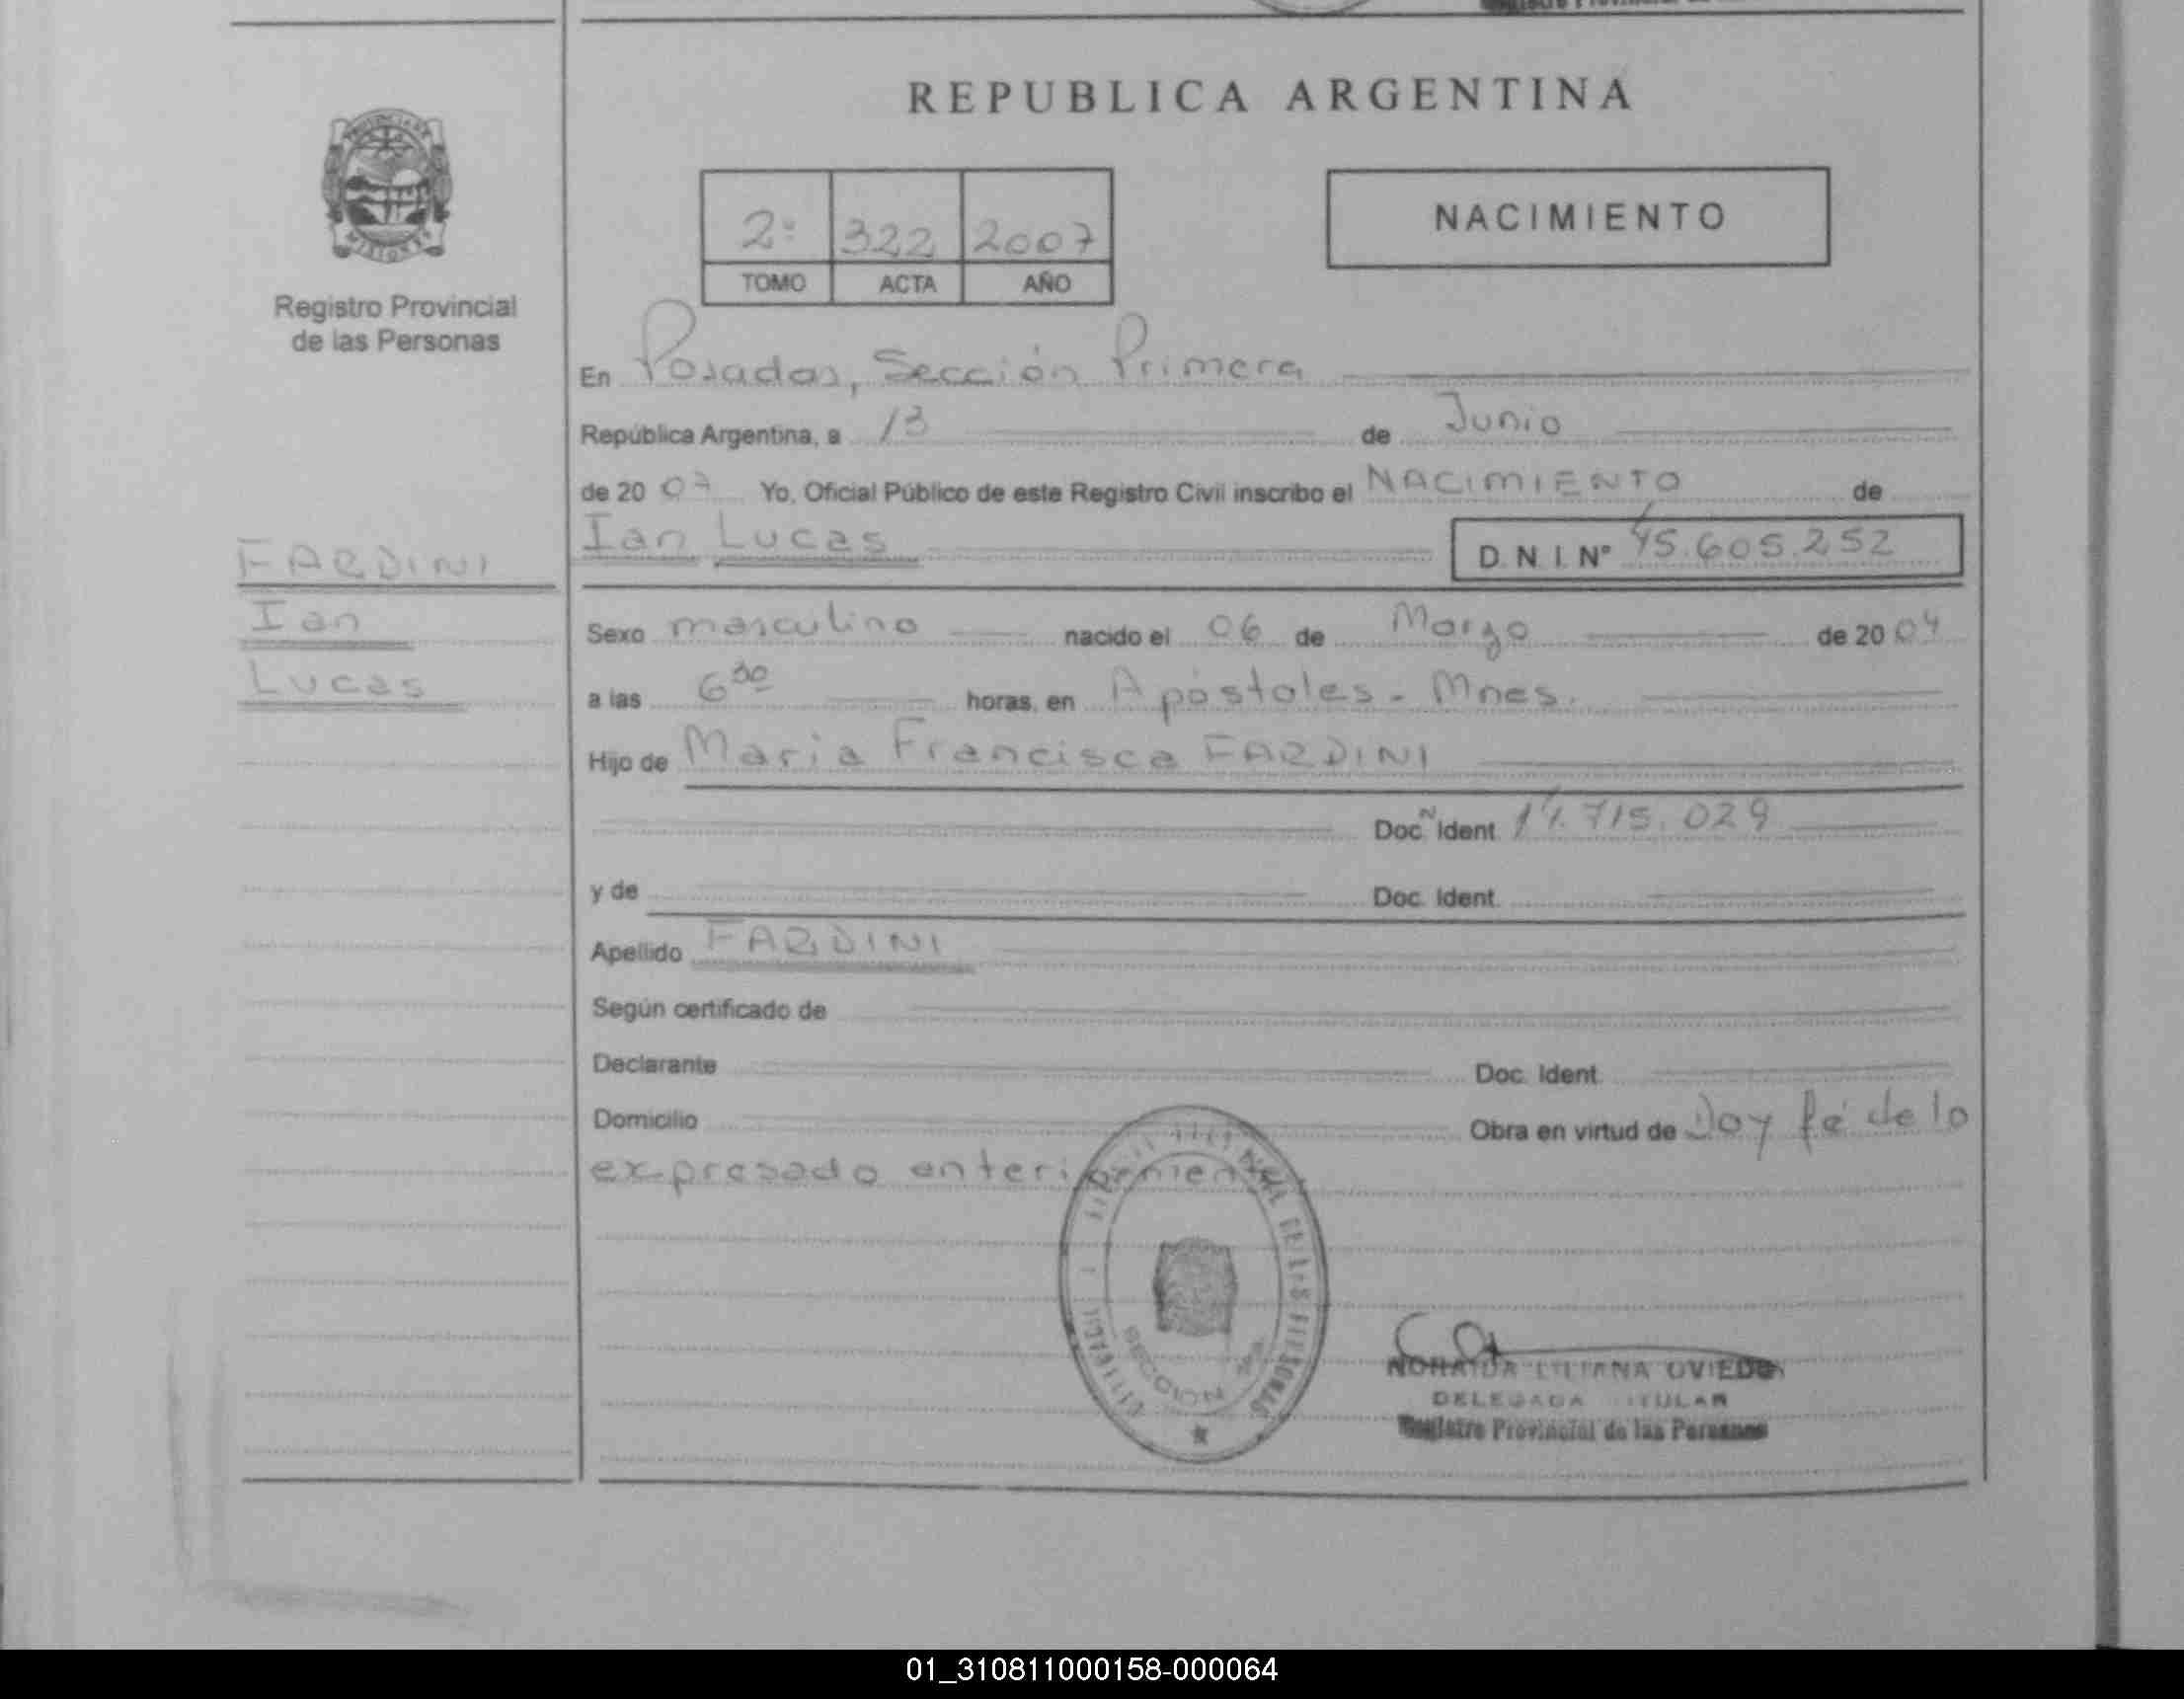 REPUBLICA ARGENTINA
2º 322 2007
TOMO ACTA AÑO
NACIMIENTO
Registro Provincial
de las Personas
En Posadas, Sección Primera
República Argentina, a 13 de Junio
de 2007 Yo, Oficial Público de este Registro Civil inscribo el NACIMIENTO de
Ian Lucas D.N.I. Nº 45.605.252
FARDINI
Ian
Lucas
Sexo masculino nacido el 06 de Marzo de 2004
a las 6 30 horas, en Apóstoles - Mnes.
Hijo de Maria Francisca FARDINI
Doc. N Ident. 17.715.029
y de Doc. Ident.
Apellido FARDINI
Según certificado de
Declarante Doc. Ident.
Domicilio Obra en virtud de Doy fé de lo
expresado anteriormente
SECCION
LILIANA OVIEDO
DELEGADA TITULAR
Registro Provincial de las Personas
01_310811000158-000064